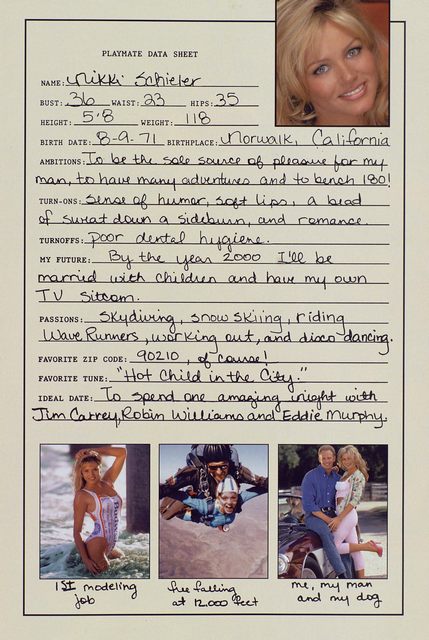 PLAYMATE DATA SHEET
NAME: Nikki Schieler
BUST: 36 WAIST: 23 HIPS: 35
HEIGHT: 5'8 WEIGHT: 118
BIRTH DATE: 8-9-71 BIRTHPLACE: Norwalk, California
AMBITIONS: To be the sole source of pleasure for my
man, to have many adventures and to bench 180!
TURN-ONS: Sense of humor, soft lips, a bead
of sweat down a sideburn, and romance.
TURNOFFS: Poor dental hygiene.
MY FUTURE: By the year 2000 I'll be
married with children and have my own
TV sitcom.
PASSIONS: Skydiving, snow skiing, riding
Wave Runners, working out, and disco dancing.
FAVORITE ZIP CODE: 90210, of course!
FAVORITE TUNE: "Hot Child in the City."
IDEAL DATE: To spend one amazing night with
Jim Carrey, Robin Williams and Eddie Murphy.
1st modeling
job
free falling
at 12,000 feet
me, my man
and my dog